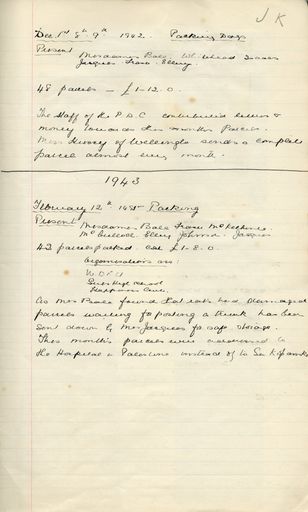 J K
Dec 1st 8th 9th 1942. Packing Days
Present Mesdames Beale, Whitehead Isaacs
Jacques Fraser. Ellery.
48 parcels — £1-12.0.
The Staff of the P.D.C contributed letters &
money towards this month's Parcels.
Miss Henry of Wellington sends a complete
parcel almost every month.
1943
February 12th Packing
Present Mesdames Beale Fraser McKechnie
McCulloch Ellery Johnson Jacques
42 parcels packed. cost £1-8.0.
Organisations are:
W.D.F.U
Girls High School
Club.
As Mrs Beale found that rats had damaged
parcels waiting for posting a trunk has been
sent down by Mrs Jacques for safe storage.
This month's parcels were addressed to
the Hospital in Palestine instead of to Sir K